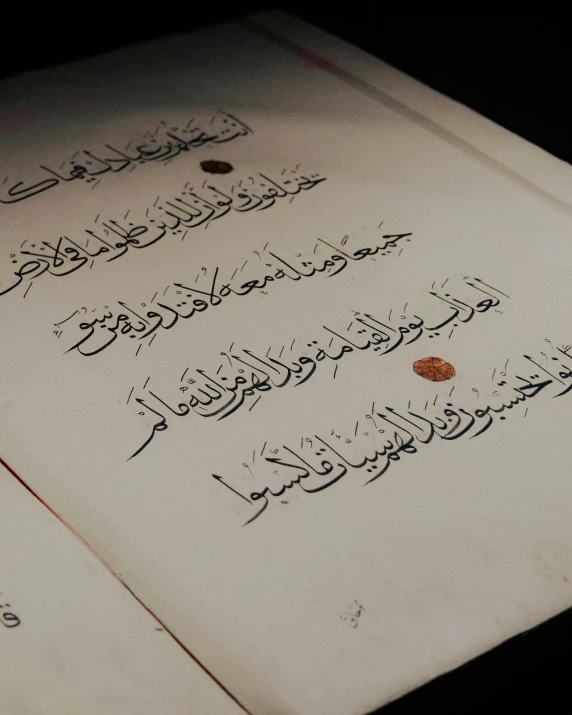 أَنْتَ تَحْكُمُ بَيْنَ عِبَادِكَ فِيمَا كَا
يَخْتَلِفُونَ وَلَوْ أَنَّ لِلَّذِينَ ظَلَمُوا مَا فِي الْأَرْضِ
جَمِيعًا وَمِثْلَهُ مَعَهُ لَافْتَدَوْا بِهِ مِنْ سُوءِ
الْعَذَابِ يَوْمَ الْقِيَامَةِ وَبَدَا لَهُمْ مِنَ اللَّهِ مَا لَمْ
نُوا يَحْتَسِبُونَ وَبَدَا لَهُمْ سَيِّئَاتُ مَا كَسَبُوا